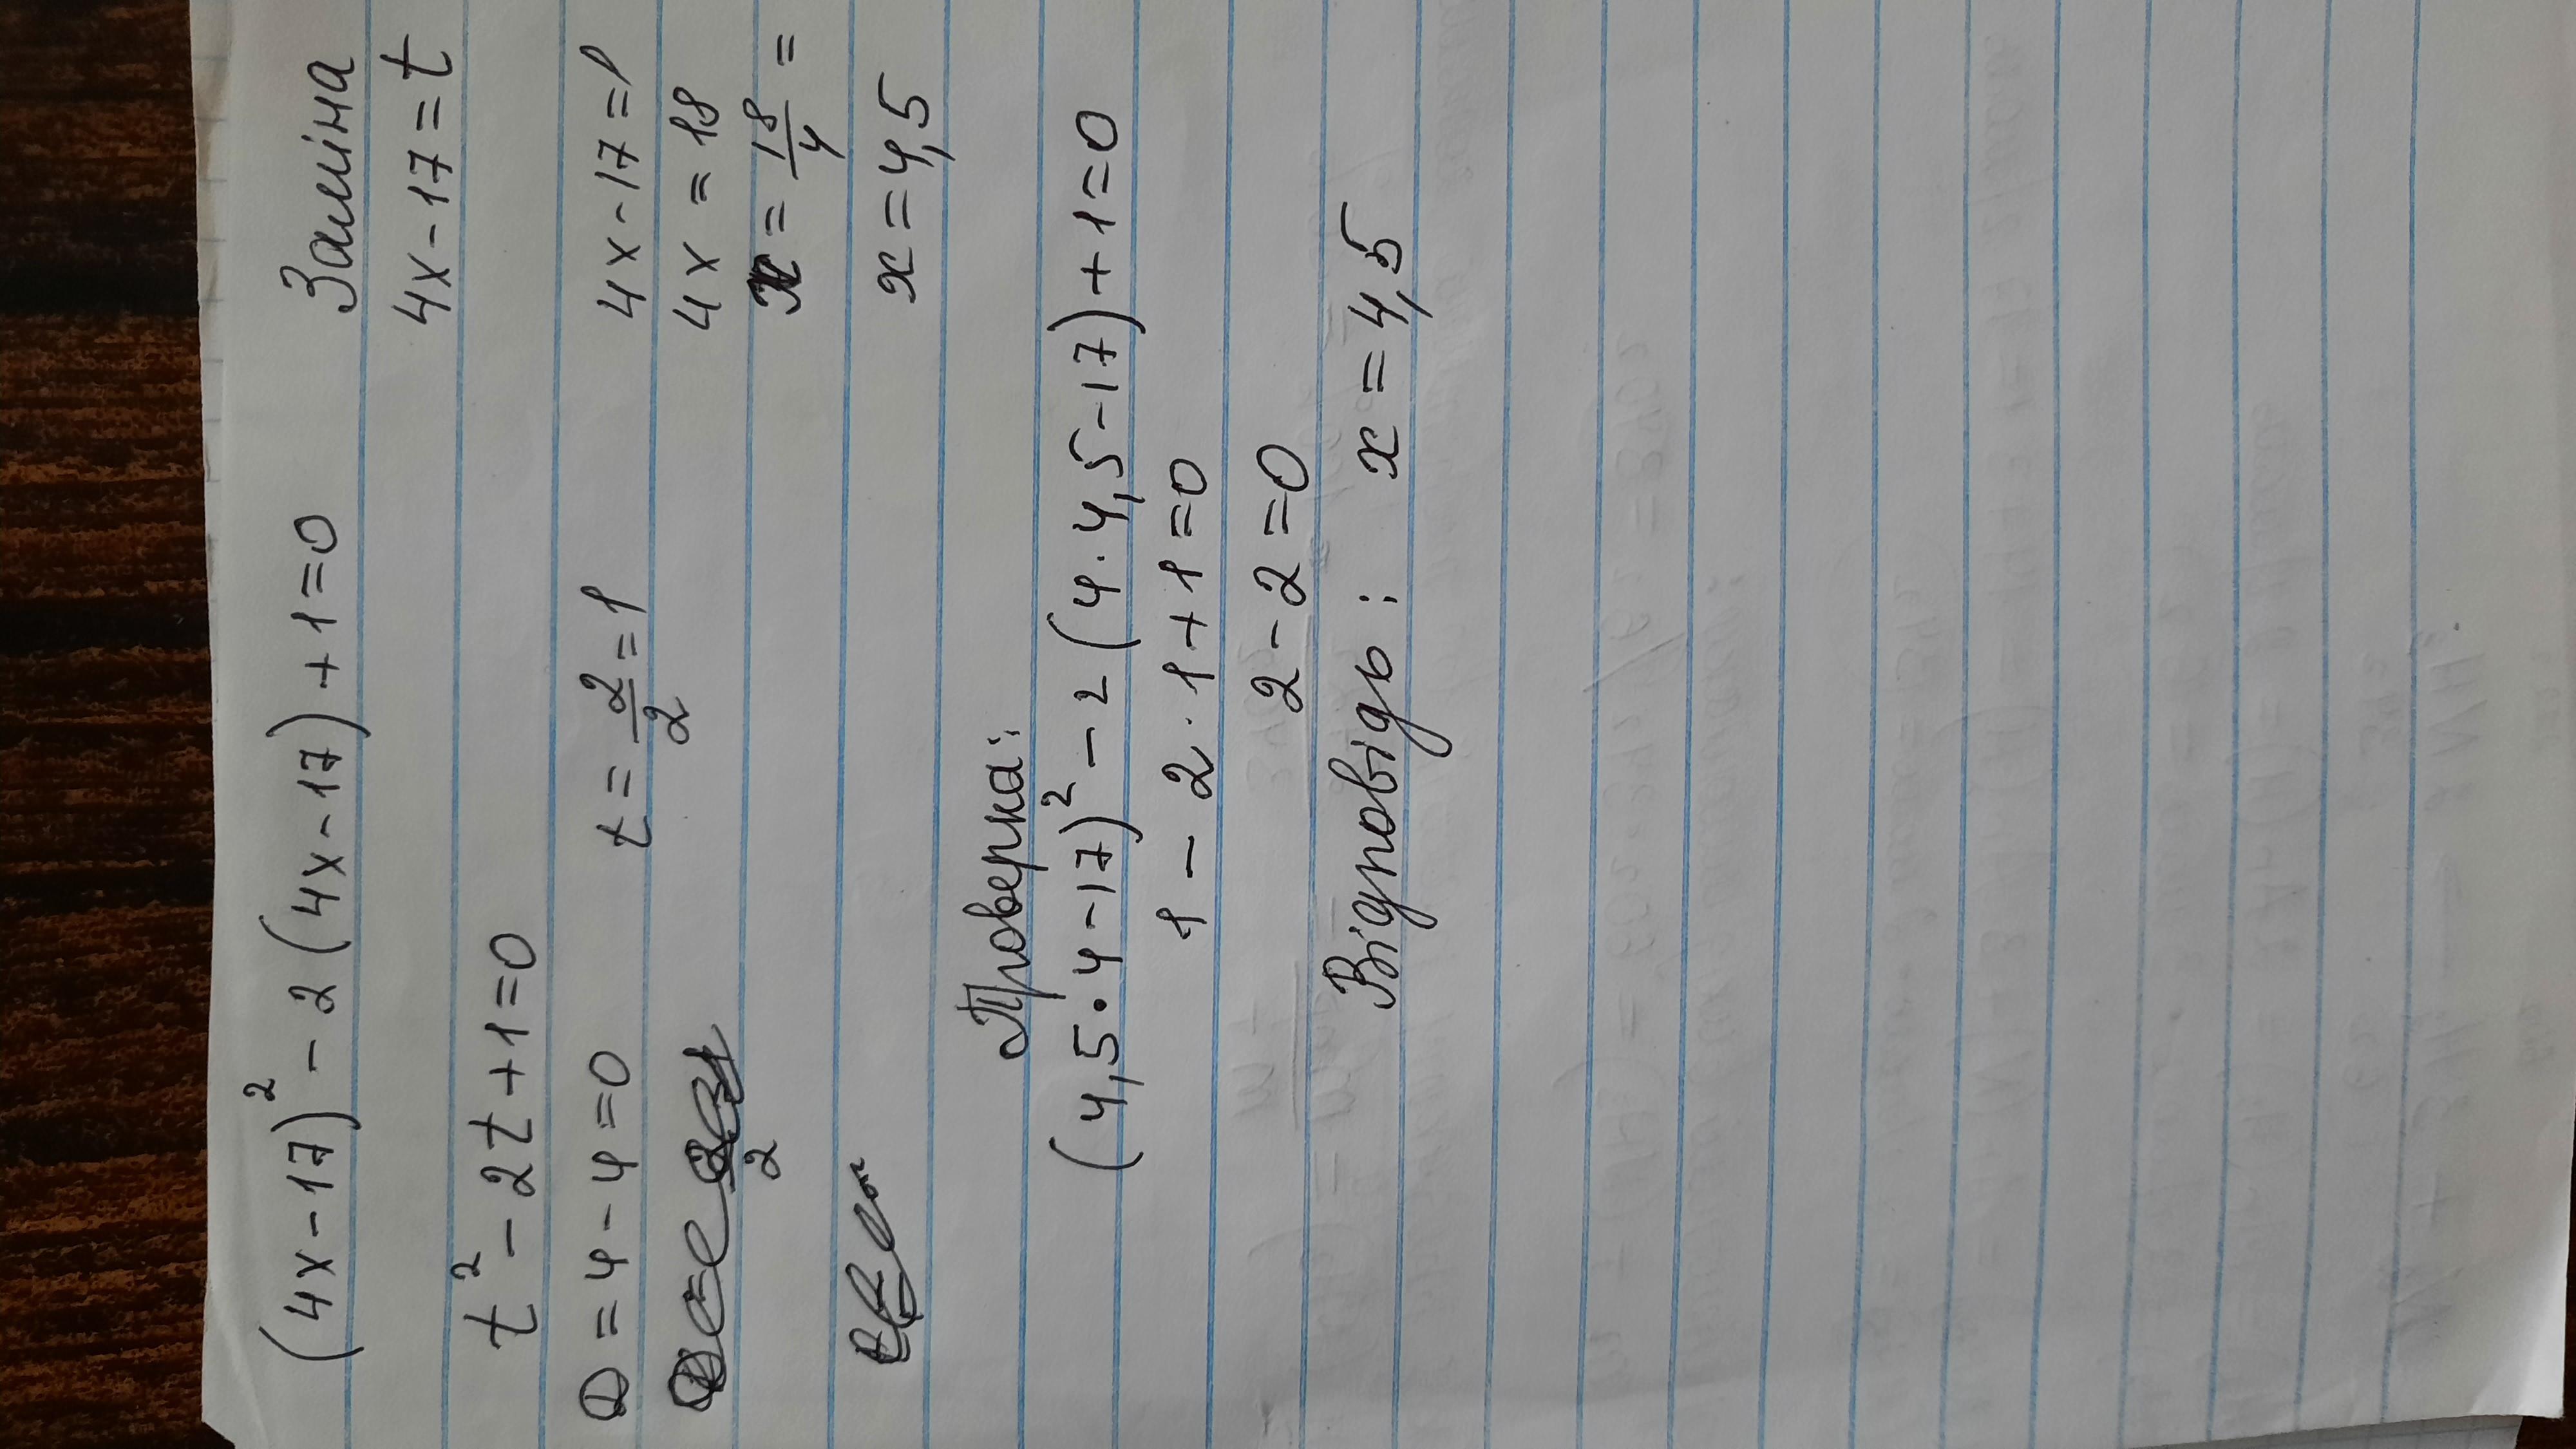 (4x-17)² - 2(4x-17)+1=0 Заміна
4x-17=t
t² - 2t+1=0
D=4-4=0 t=2/2=1 4x-17=1
4x=18
2 x=18/4=
x=4,5
Проверка:
(4,5·4-17)² - 2(4·4,5-17)+1=0
1 - 2·1+1=0
2-2=0
Відповідь: x=4,5